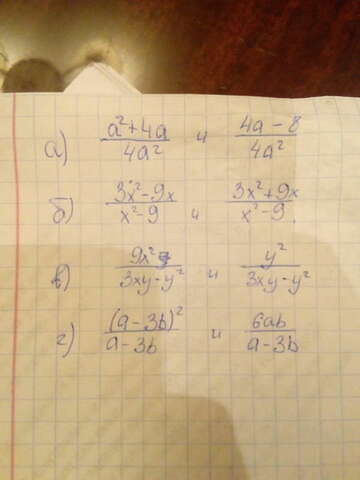 а) (a²+4a)/(4a²) и (4a-8)/(4a²)
б) (3x²-9x)/(x²-9) и (3x²+9x)/(x²-9).
в) (9x²)/(3xy-y²) и (y²)/(3xy-y²)
г) ((a-3b)²)/(a-3b) и (6ab)/(a-3b)